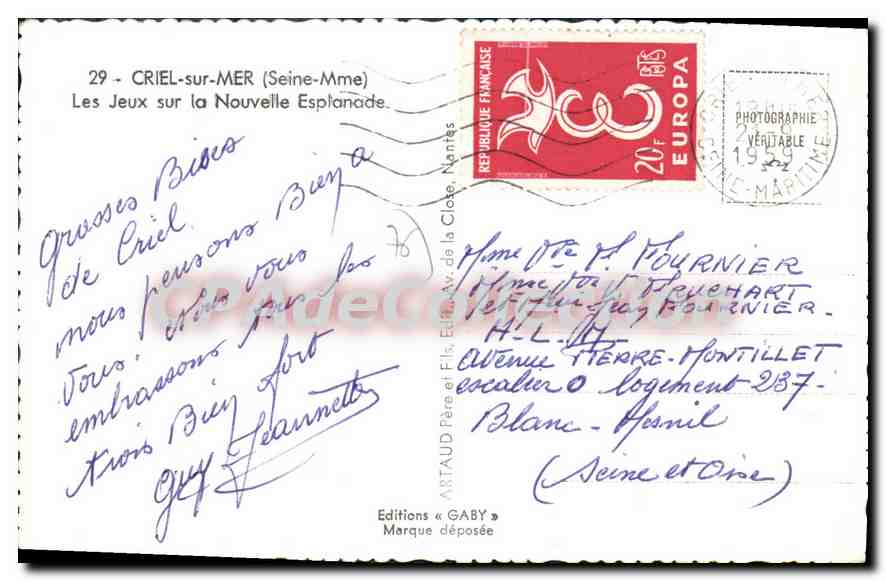 29 - CRIEL-sur-MER (Seine-Mme)
Les Jeux sur la Nouvelle Esplanade
Grosses Bises
de Criel.
nous pensons Bien a
vous. Nous vous
embrassons tous les
trois Bien fort
Guy Jeannette
ARTAUD Père et Fils, Edit., Av. de la Close, Nantes
Editions « GABY »
Marque déposée
REPUBLIQUE FRANÇAISE
20F
EUROPA
PHOTOGRAPHIE
VÉRITABLE
21-9
1959
SEINE-MARITIME
Mme Vve M. FOURNIER
Mme Vve
Jean FOURNIER.
H.L.M.
avenue PIERRE-MONTILLET
escalier O logement 237-
Blanc-Mesnil
(Seine et Oise)
CPAdeCollection